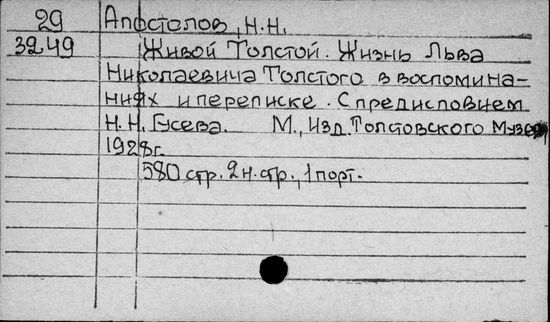 29 Апостолов, Н.Н.
3249 Живой Толстой. Жизнь Льва
Николаевича Толстого в воспомина-
ниях и переписке. С предисловием
Н.Н. Гусева. М., Изд. Толстовского Музея
1928г.
580 стр. 2 н. стр., 1 порт.